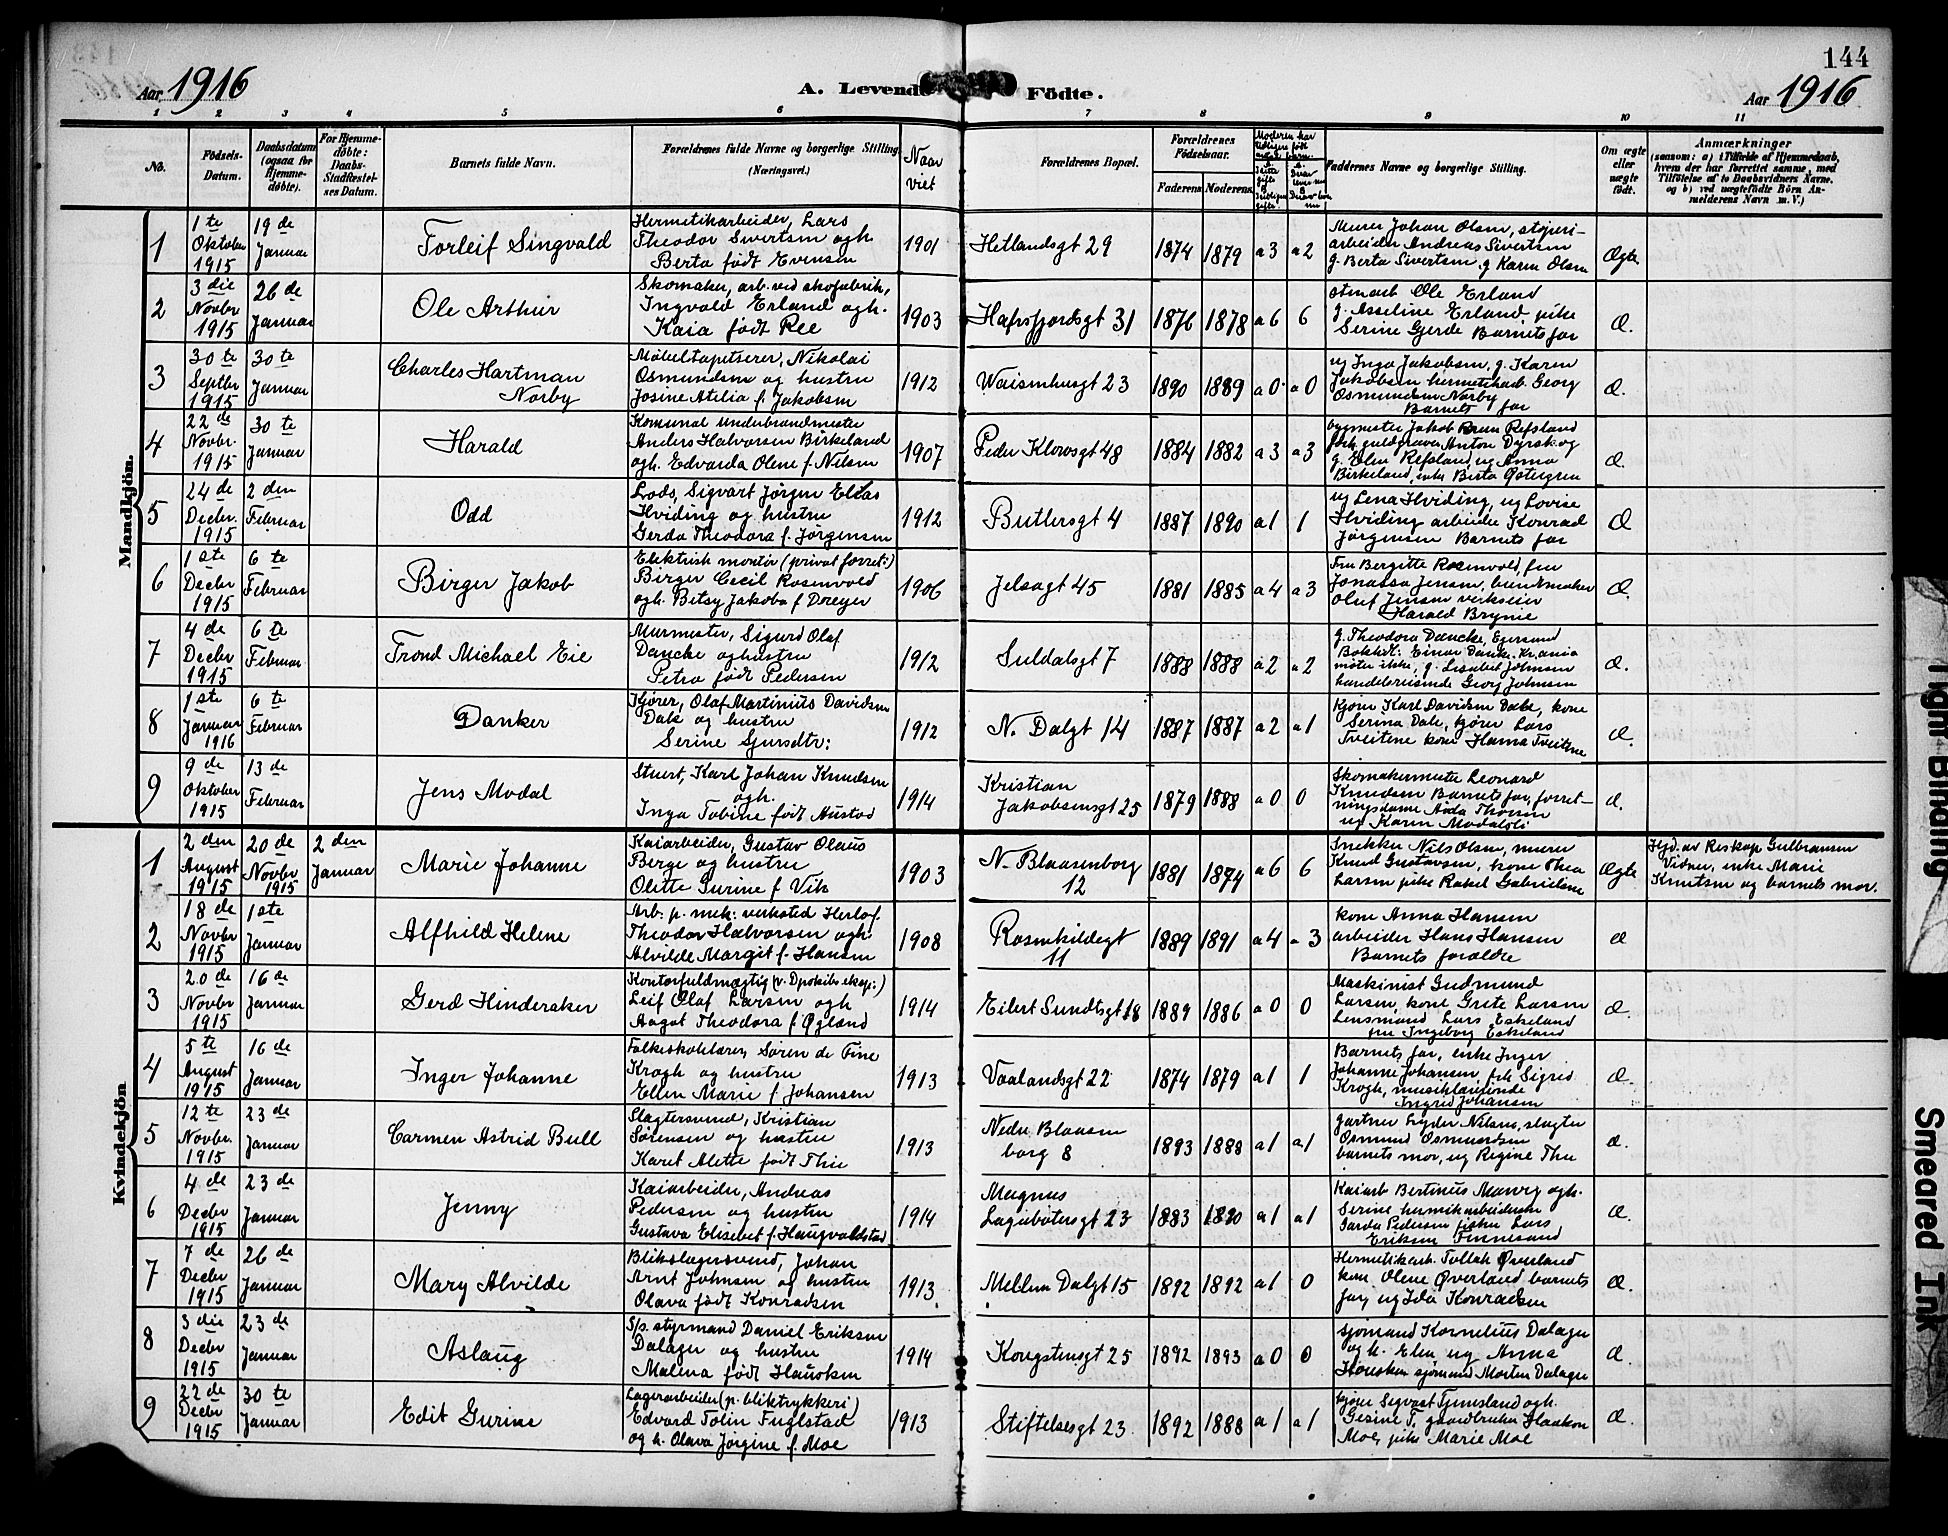 144
Aar 1916
A. Levende Födte.
Aar 1916
1 2 3 4 5 6 7 8 9 10 11
No.
Födsels-Datum.
Daabsdatum (ogsaa for Hjemme-döbte).
For Hjemme-döbte: Daabs-Stadfæstel-ses Datum.
Barnets fulde Navn.
Forældrenes fulde Navne og borgerlige Stilling (Næringsvei.)
Naar viet
Forældrenes Bopæl.
Forældrenes Födselsaar.
Faderens Moderens
Faddernes Navne og borgerlige Stilling.
Om ægte eller uægte födt.
Anmærkninger
(saasom: a) i Tilfælde af Hjemmedaab, hvem der har forrettet samme, med Tilföielse af to Daabsvidners Navne, og b) ved uægtefödte Börn An-melderens Navn m. V.)
Mandkjön.
1
1te Oktober 1915
19de Januar
Torleif Singvald
Hermetikarbeider, Lars
Theodor Sivertsen og h.
Berta født Evensen
1901
Hetlandsgt 29
1874 1879 a 3 a 2
Murer Johan Olsen, støperi-
arbeider Andreas Sivertsen
g. Berta Sivertsen, g Karen Olsen
Ægte
2
3die Novbr 1915
26de Januar
Ole Arthur
Skomaker, arb. ved skofabrik,
Ingvald Erland og h.
Kaia født Ree
1903
Hafrsfjordsgt 31
1876 1878 a 6 6
Ole Erland
g. Asseline Erland pike
Serine Gjerde Barnets far
Æ.
3
30te Septbr 1915
30te Januar
Charles Hartman
Norby
Møbeltapetserer, Nikolai
Osmundsen og hustru
Josine Atilia f. Jakobsen
1912
Waisenhusgt 23
1890 1889 a 0 a 0
ug Inga Jakobsen, g. Karen
Jakobsen hermetikarb. Georg
Osmundsen Norby
Barnets far
Æ.
4
22de Novbr. 1915
30te Januar
Harald
Komunal underbrandmester
Anders Halvorsen Birkeland
og h. Edvarda Olene f. Nilsen
1907
Peder Klowsgt 48
1884 1882 a 3 a 3
bygmester Jakob Refsland
guldgraver Anton Dyrsk og
g. Elen Refsland, ug Anna
Birkeland, enke Berta
Æ.
5
24de Decbr. 1915
2den Februar
Odd
Lods, Sigvart Jørgen Elias
Hviding og hustru
Gerda Theodora f. Jørgensen
1912
Butlersgt 4
1887 1890 a 1 1
ug Lena Hviding, ug Lovise
Hviding arbeider Konrad
Jørgensen Barnets far
Æ
6
1ste Decbr 1915
6te Februar
Birger Jakob
Elektrisk montør (privat forret.)
Birger Cecil Rosenvold
og h. Betsy Jakoba f Dreyer
1906
Jelsagt 45
1881 1885 a 4 a 3
Fru Bergitte Rosenvold, fru
Jonassa Jensen,
Oluf Jensen verkseier
Harald Bryne
Æ.
7
4de Decbr 1915
6te Februar
Trond Michael Eie
Murmester, Sigurd Olaf
Dancke og hustru
Petra født Pedersen
1912
Suldalsgt 7
1888 1888 a 2 a 2
g. Theodora Dancke, Egersund
Bokhol: Einar Dancke Kr.ania
møter ikke, g. Lisabet Johnsen
handelsreisende Georg Johnsen
Æ.
8
1ste Januar 1916
6te Februar
Danker
Kjører, Olaf Martinius Davidsen
Dale og hustru
Serine Sjursdtr:
1912
N. Dalgt 14
1887 1887 a 2 a 1
Kjører Karl Davidsen Dale, kone
Serina Dale, kjører Lars
Tveitene kone Hanna Tveitene
Æ.
9
9de Oktober 1915
13de Februar
Jens Modal
Stuert, Karl Johan Knudsen
og h.
Inga Tobine født Austad
1914
Kristian
Jakobsensgt 25
1879 1888 a 0 0
Skomakermester Leonard
Knudsen Barnets far, forret-
ningsdame Aida Thorsen
ug Karen Modalsli
Æ.
Kvindekjön
1
2den August 1915
20de Novbr 1915
2den Januar
Marie Johanne
Kaiarbeider, Gustav Olaus
Berge og hustru
Olette Gurine f Vik
1903
N. Blaasenborg
12
1881 1874 a 6 6
Snekker Nils Olsen, murer
Knud Gustavsen, kone Thea
Larsen pike Rakel Gabrielsen
Ægte
Hjd. av Reskap Gulbransen
Vidner, enke Marie
Knutsen og barnets mor.
2
18de Novbr 1915
1ste Januar
Alfhild Helene
Arb. p. mek: verksted Herlof
Theodor Halvorsen og h
Alvilde Margit f. Hansen
1908
Rosenkildegt
11
1889 1891 a 4 a 3
kone Anna Hansen
arbeider Hans Hansen
Barnets forældre
Æ
3
20de Novbr 1915
16de Januar
Gerd Hinderaker
Kontorfuldmægtig
Leif Olaf Larsen og h
Aagot Theodora f. Øgland
1914
Eilert Sundtsgt 18
1889 1886 a 0 0
Maskinist Gudmund
Larsen, kone Grete Larsen
Lensmand Lars Eskeland
fru Ingeborg Eskeland
Æ.
4
5te August 1915
16de Januar
Inger Johanne
Folkeskolelærer, Søren de Fine
Krogh og hustru
Ellen Marie f Johansen
1913
Vaalandsgt 22
1874 1879 a 1 1
Barnets far, enke Inger
Johanne Johansen, frk Sigrid
Krogh, musiklærerinde
Ingrid Johansen
Æ.
5
12te Novbr. 1915
23de Januar
Carmen Astrid Bull
Slagtersvend, Kristian
Sørensen og hustru
Karet Alette født Thu
1913
Nedre Blaasen
borg 8
1893 1888 a 1 a 1
gartner Lyder Nilsen, slagter
Osmund Osmundsen
barnets mor, ug Regine Thu
Æ.
6
4de Decbr 1915
23de Januar
Jenny
Kaiarbeider, Andreas
Pedersen og hustru
Gustava Elisebet f. Haugvaldstad
1914
Magnus
Lagabøtersgt 23
1883 1890 a 1 a 1
Kaiarb Bertinus og h.
Serine hermikarbeiderske
Pedersen Lars
Eriksen Finnesand
Æ.
7
7de Decbr 1915
26de Januar
Mary Alvilde
Blikslagersvend, Johan
Arnt Johnsen og hustru
Olava født Konradsen
1913
Mellem Dalgt 15
1892 1892 a 1 0
Hermetikarb. Tollak Øverland
kone Olene Øverland barnets
far, ug Ida Konradsen
Æ.
8
3die Decbr 1915
23de Januar
Aslaug
S/s. styrmand Daniel Eriksen
Dalager og hustru
Malena født Hausken
1914
Kongstensgt 25
1892 1893 a 0 0
sjømand Kornelius Dalager
og h. Elen ug Anna
Hausken sjømand Morten Dalager
Æ.
9
22de Decbr 1915
30te Januar
Edit Gurine
Lagerarbeider (p. bliktrykkeri)
Edvard Tolin Fuglstad
og h. Olava Jørgine f. Moe
1913
Stiftelsesgt 23
1892 1888 a 1 a 1
kjører Sigvart Tjensland og h.
Gesine T. gaardbruker Haakon
Moe, pike Marie Moe
Æ.
Tight Binding
Smeared Ink